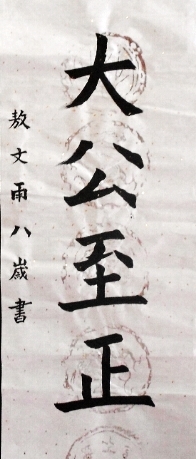 大公至正
敖文雨八歲書